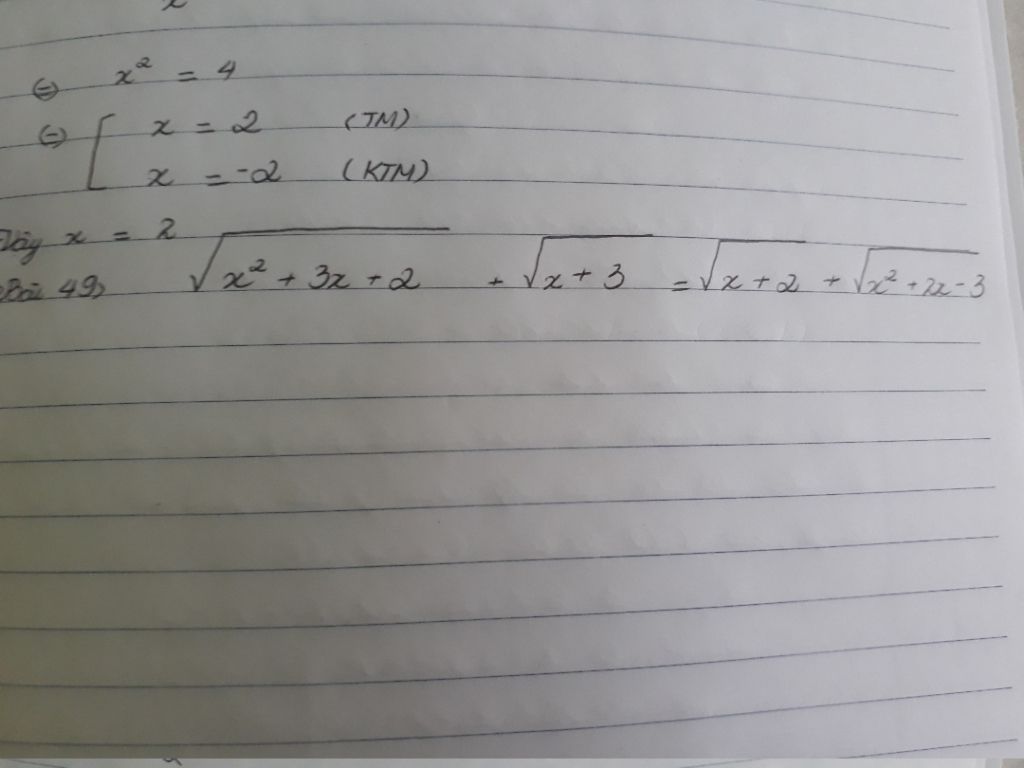 x
⇔ x² = 4
⇔ [ x = 2 (TM)
x = -2 (KTM)
Vậy x = 2
Bài 49) √(x² + 3x + 2) + √(x + 3) = √(x + 2) + √(x² + 2x - 3)